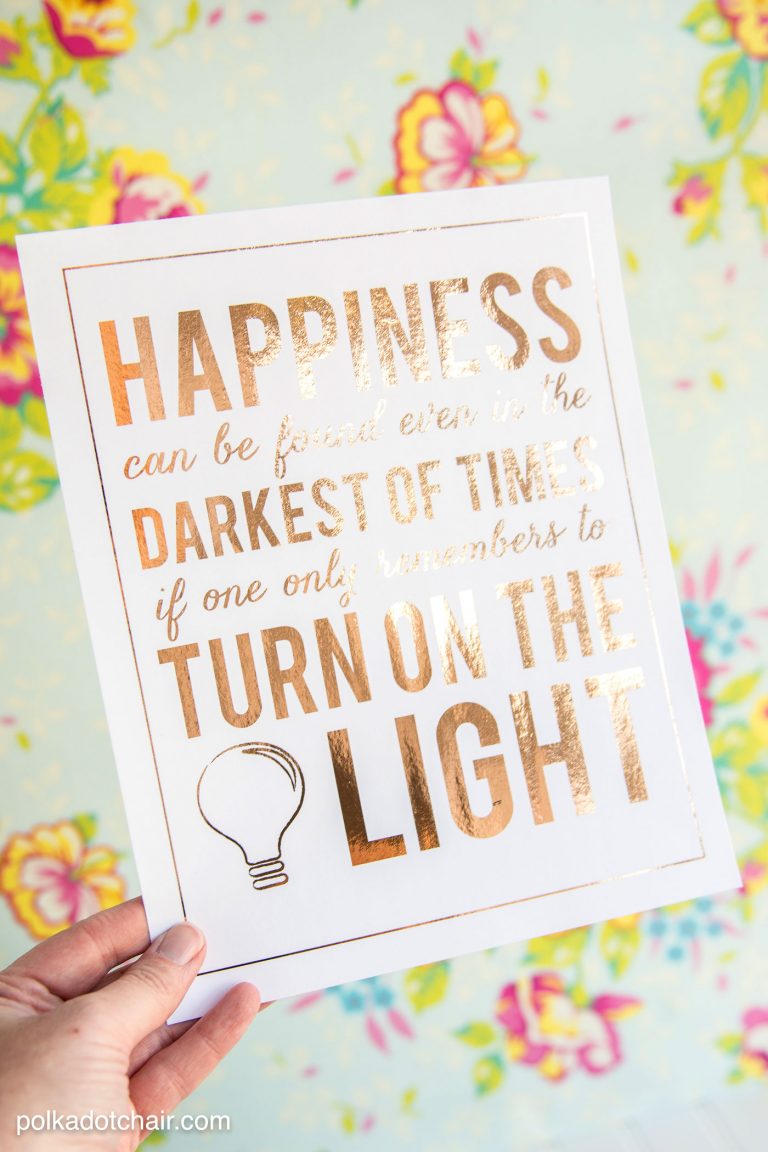 HAPPINESS
can be found even in the
DARKEST OF TIMES
if one only remembers to
TURN ON THE
LIGHT
polkadotchair.com